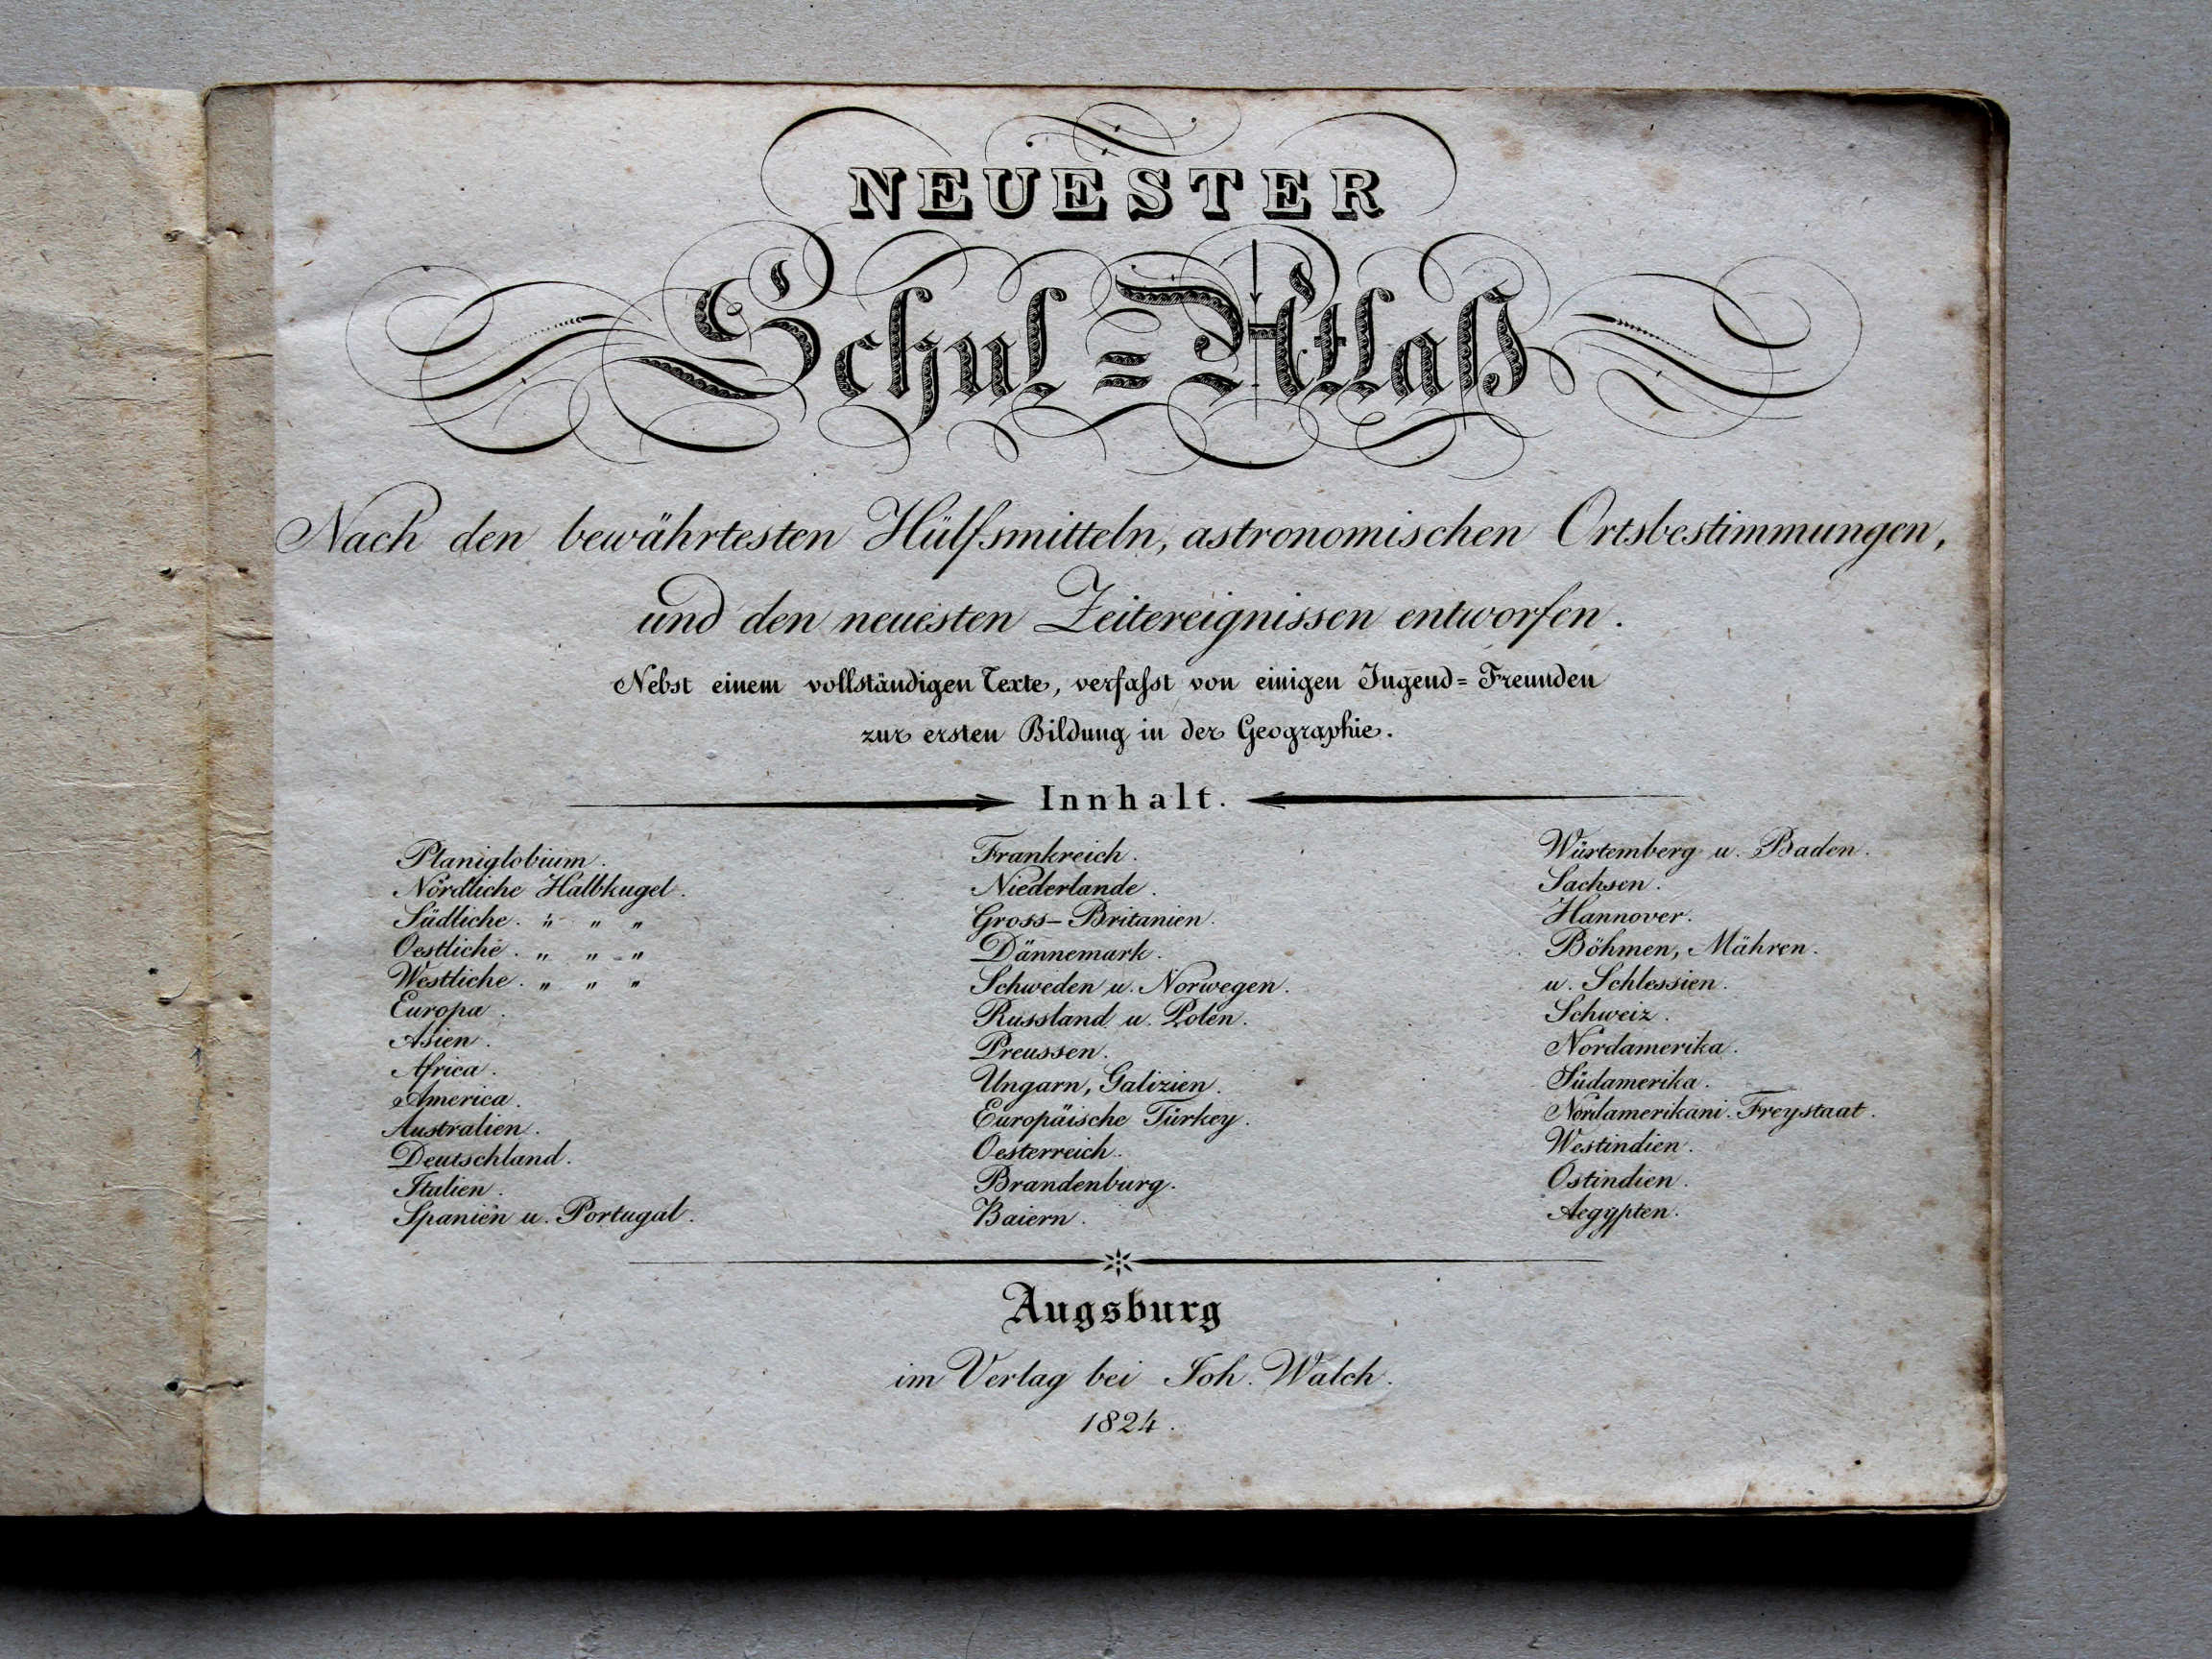 NEUESTER
Schul=Atlaß
Nach den bewährtesten Hülfsmitteln, astronomischen Ortsbestimmungen,
und den neuesten Zeitereignissen entworfen.
Nebst einem vollständigen Texte, verfaſst von einigen Jugend=Freunden
zur ersten Bildung in der Geographie.
Innhalt.
Planiglobium.
Nördliche Halbkugel.
Südliche. " " "
Oestliche. " " "
Westliche. " " "
Europa.
Asien.
Africa.
America.
Australien.
Deutschland.
Italien.
Spanien u. Portugal.
Frankreich.
Niederlande.
Gross-Britanien.
Dännemark.
Schweden u. Norwegen.
Russland u. Polen.
Preussen.
Ungarn, Galizien.
Europäische Türkey.
Oesterreich.
Brandenburg.
Baiern.
Würtemberg u. Baden.
Sachsen.
Hannover.
Böhmen, Mähren.
u. Schlessien.
Schweiz.
Nordamerika.
Südamerika.
Nordamerikani. Freystaat.
Westindien.
Ostindien.
Aegypten.
Augsburg
im Verlag bei Joh. Walch.
1824.